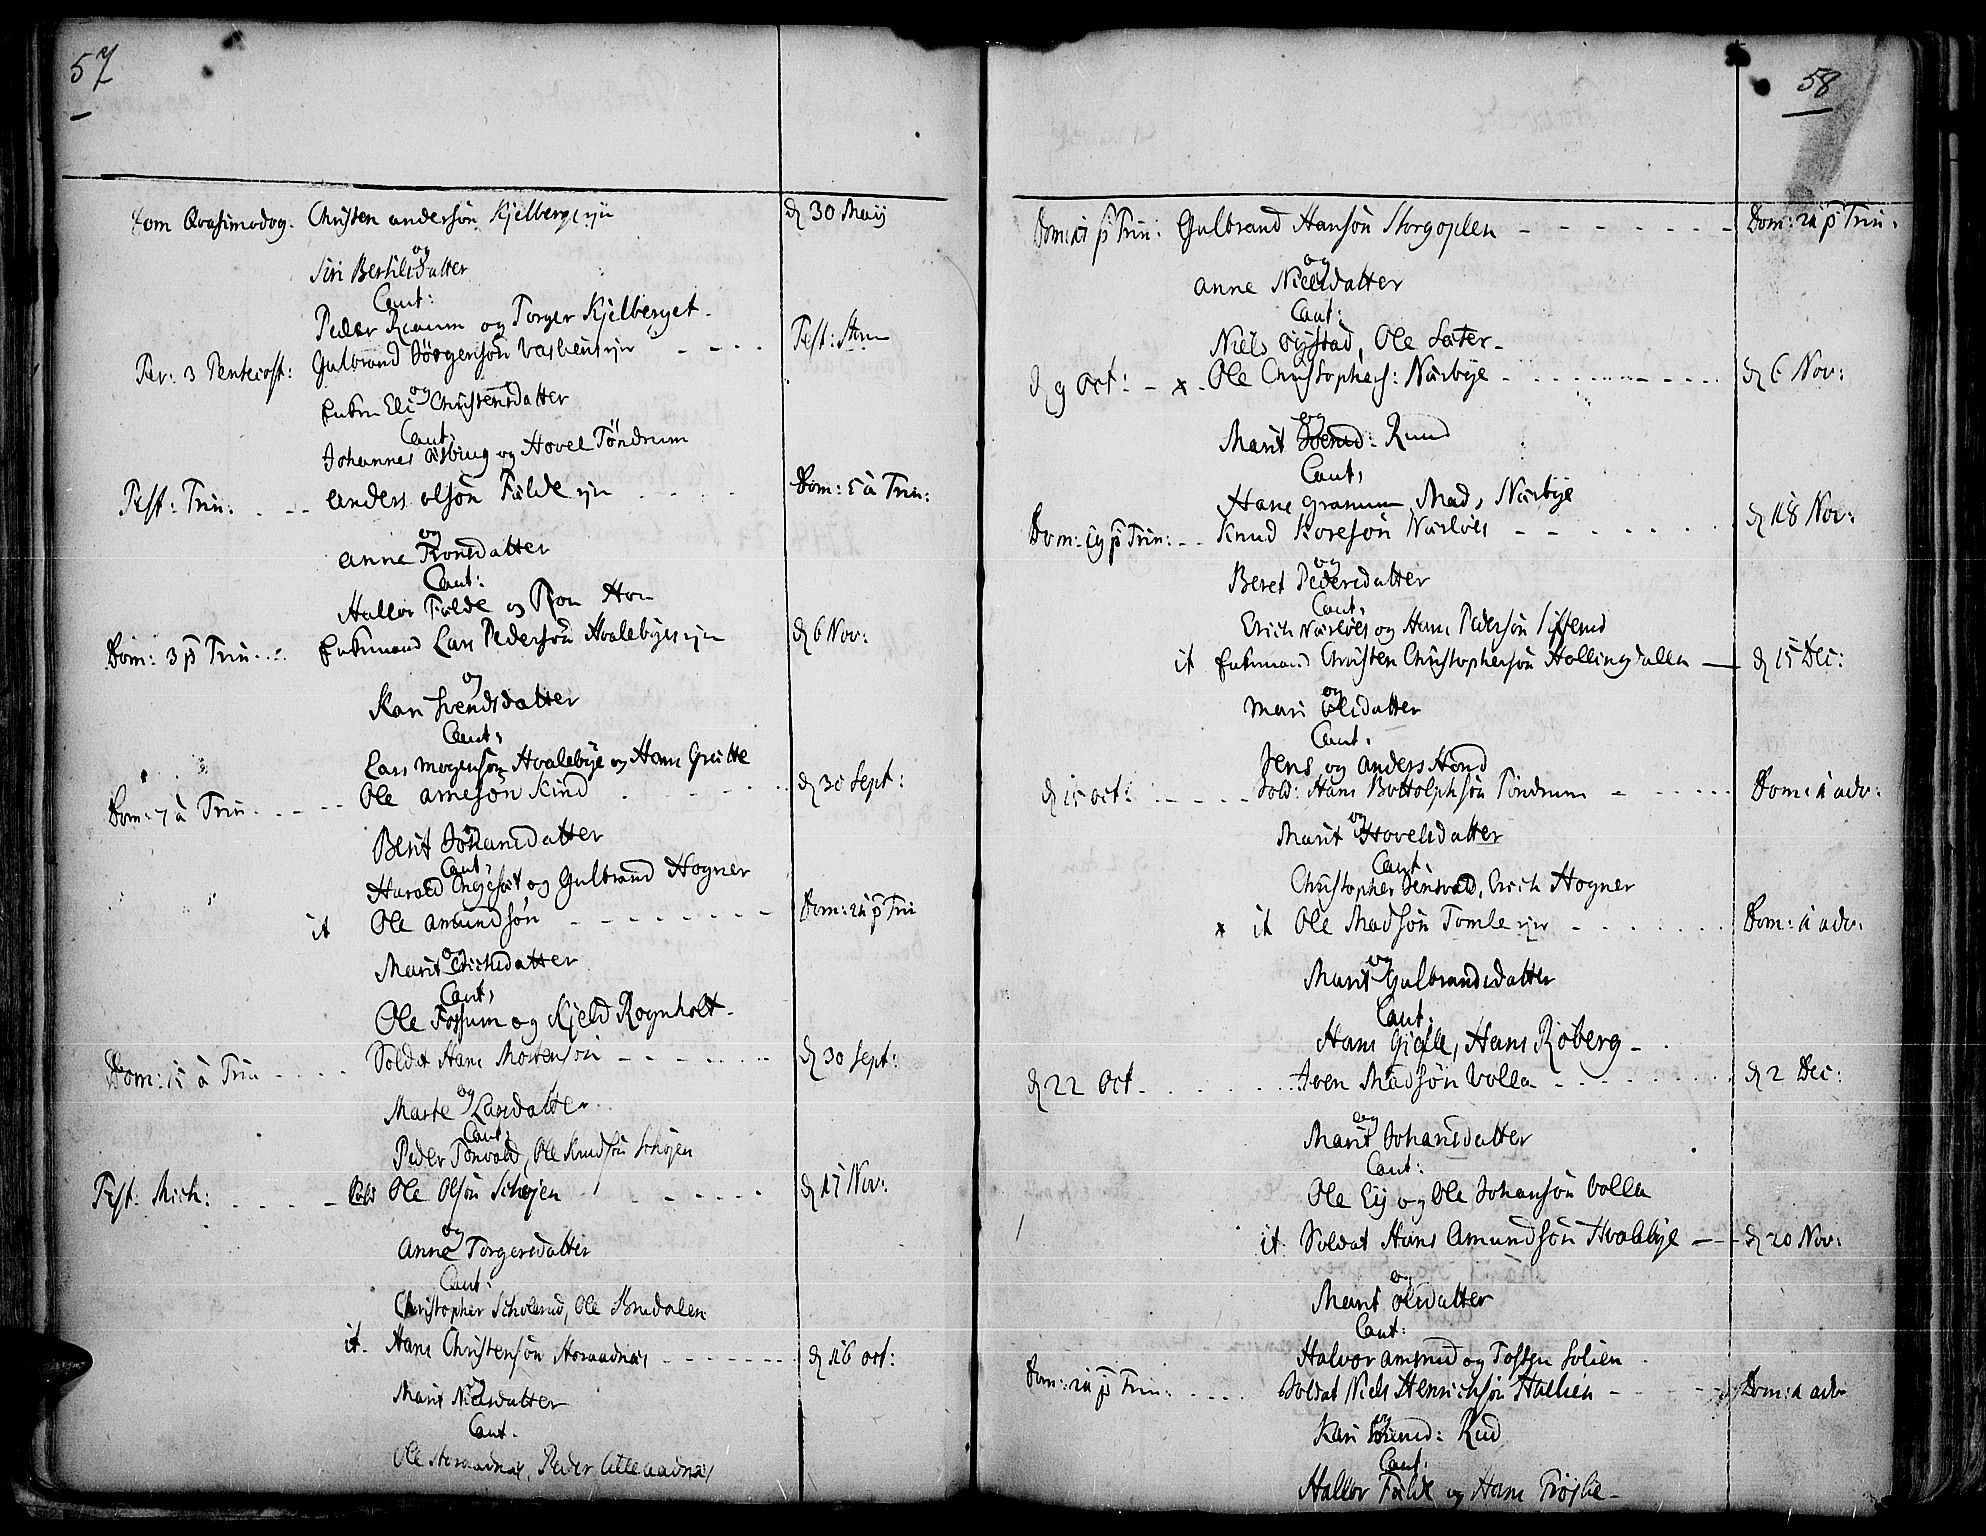 57
Dom Qvasimodog. Christen Andersön Kjelberg ejn d 30 Maij
og
Siri Bertilsdatter
Caut:
Peder Raum og Torger Kjelberget.
Fer: 3 Pentecost: Gulbrand Jörgensön ejn - - - - Fest:
og
Enken Eli Christensdatter
Caut:
Johannes og Hovel Töndrum
Fest: Trin: - - - Anders Olsön Falde ejn - - - - Dom: 5 à Trin:
og
Anne Ronsdatter
Caut:
Hallor Falde og Ron Hon
Dom: 3 p Trin: - - Enkemand Lars Pedersön Hvalebye ejn d 6 Nov:
og
Kari Svendsdatter
Caut:
Lars Mogensön Hvalebye og Hans Grütte
Dom: 7 à Trin - - - Ole Arnesön Kind - - - - d 30 Sept:
Berit Johansdatter
Caut:
Harald og Gulbrand Hogner
it Ole Amundsön - - - - - - - - Dom: 21 p Tri
og
Marit Erichsdatter
Caut:
Ole Fossum og Kjeld Rognholt -
Dom: 15 à Trin - - - - Soldat Hans Mortensön - - - - - d 30 Sept:
og
Marte Larsdatter
Caut:
Peder Tonvold, Ole Knudsön Schöjen
Fest. Mich: - - - - - Sold Ole Olsön Schöjen - - - - - d 17 Nov:
og
Anne Torgersdatter
Caut:
Christopher Scholerud, Ole Bredalen
it. Hans Christensön - - - - - - - d 16 Oct:
og
Marit Nielsdatter
Caut.
Ole , Peder
58
Dom: 11 p Trin: Gulbrand Hansön Storgoplen - - - - - - - Dom: 21 p Trin:
og
Anne Nielsdatter
Caut:
Niels Öjstad, Ole Sæter -
d 9 Oct: - x - Ole Christophers: Nærbye - - - - - - - - d 6 Nov:
og
Marit Svend: Ruud
Caut:
Hans Gramm Mads Nærbye
Dom: 19 p Trin: - - Knud Koresön Nærloes - - - - - - d 18 Nov:
og
Beret Pedersdatter
Caut:
Erich Nærloes og Hans Pedersön
it Enkemand Christen Christophersön Hollingdallen — d 15 Dec:
og
Mari Olsdatter
Caut:
Jens og Anders Hond
d 15 Oct: - - - - - Sold: Hans Bottolphsön Töndrum - - - - - - Dom: 1 adv:
og
Marit Hovelsdatter
Caut:
Christopher , Erich Hogner
x it Ole Madsön Tomle ejn - - - - - - Dom: 1 adv:
og
Marit Gulbrandsdatter
Caut:
Hans Gielle, Hans Roberg -
d 22 Oct - - - - - - Iven Madsön Volla - - - - - - - - - d 2 Dec:
og
Marit Johansdatter
Caut:
Ole Eij og Ole Johansön Volla
it Soldat Hans Amundsön Hvalebye - - - d 20 Nov:
og
Marit Olsdatter
Caut:
Halvor og Tosten Solien
Dom: 21 p Trin: - - - - Soldat Niels Henrichsön Hallien - - - - - Dom: 1 adv
og
Kari Svend: Rud
Caut:
Hallor Falde og Hans Fröslie -